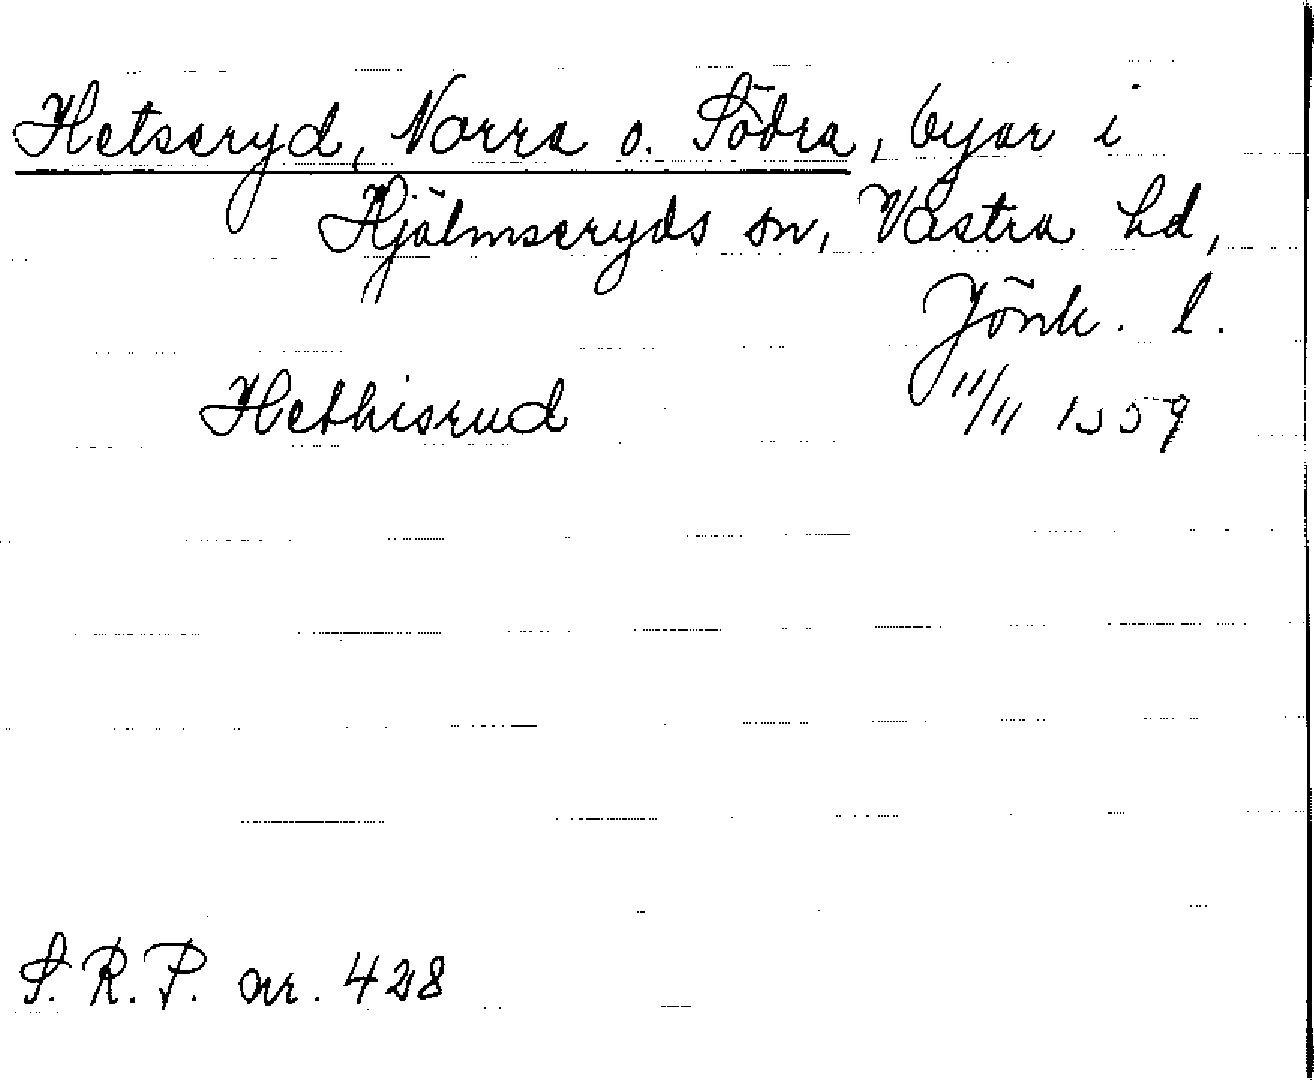 Hetseryd, Norra o. Södra, byar i
Hjälmseryds sn, Västra hd,
Jönk. l.
Hethisrud 11/11 1359
S. R. P. nr. 428